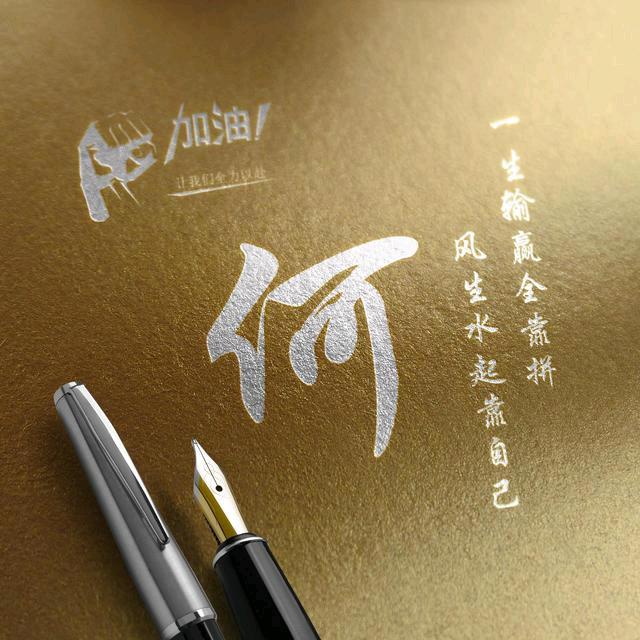 加油!
让我们全力以赴
何
一生输赢全靠拼
风生水起靠自己